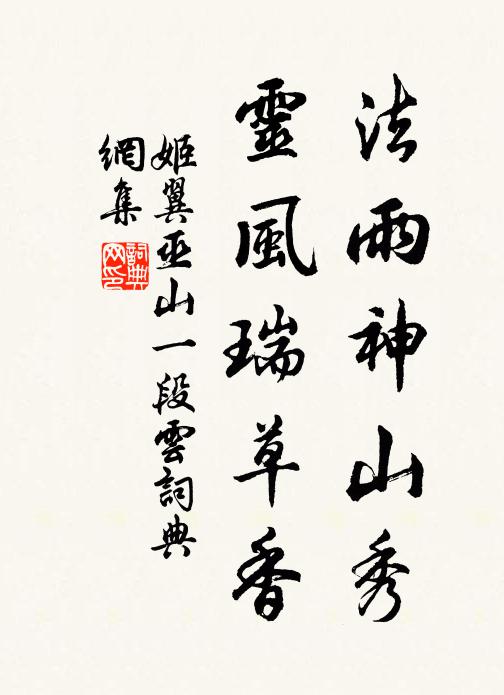 法雨神山秀
靈風瑞草香
姬翼巫山一段雲詞典
網集
詞典
网印